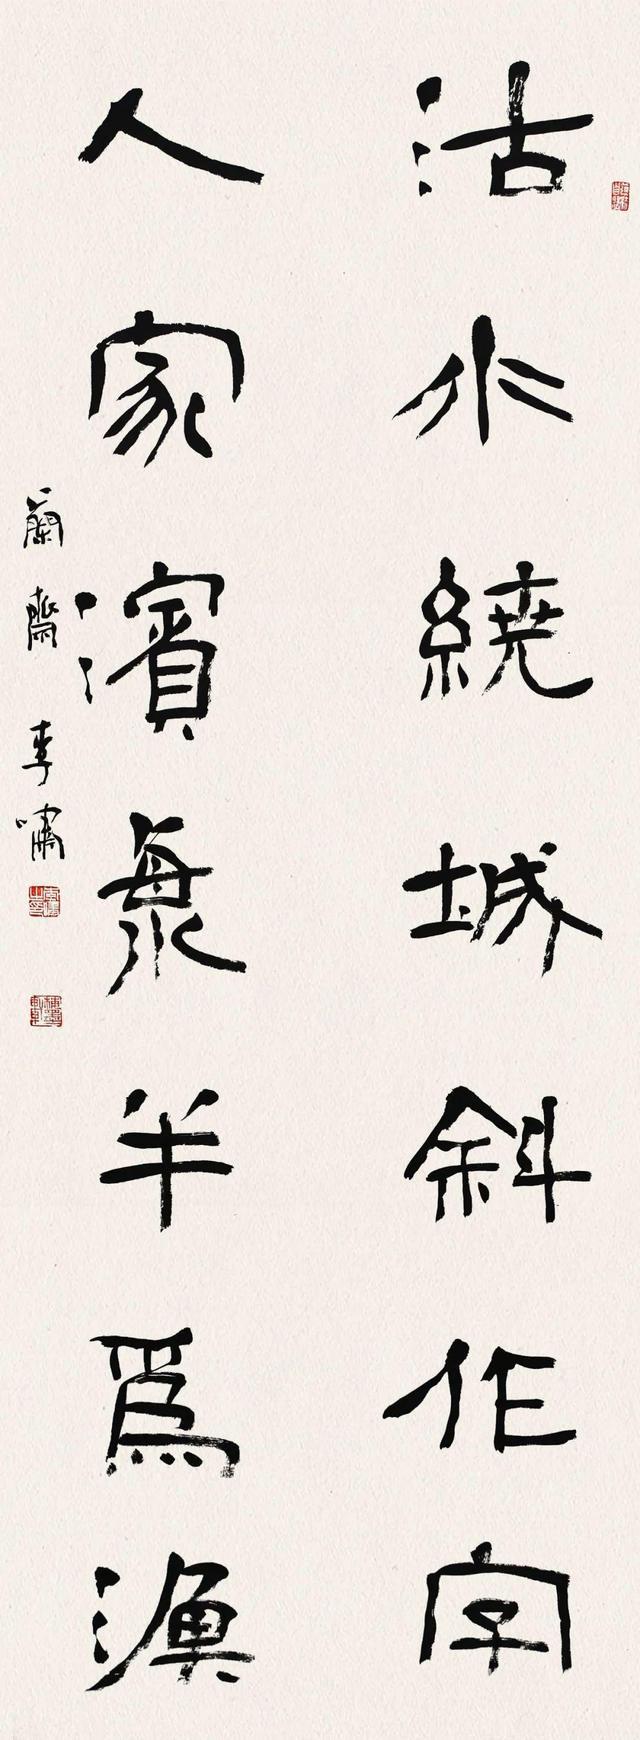 沽水繞城斜作字
人家濱海半爲漁
蘭齋 李嘯